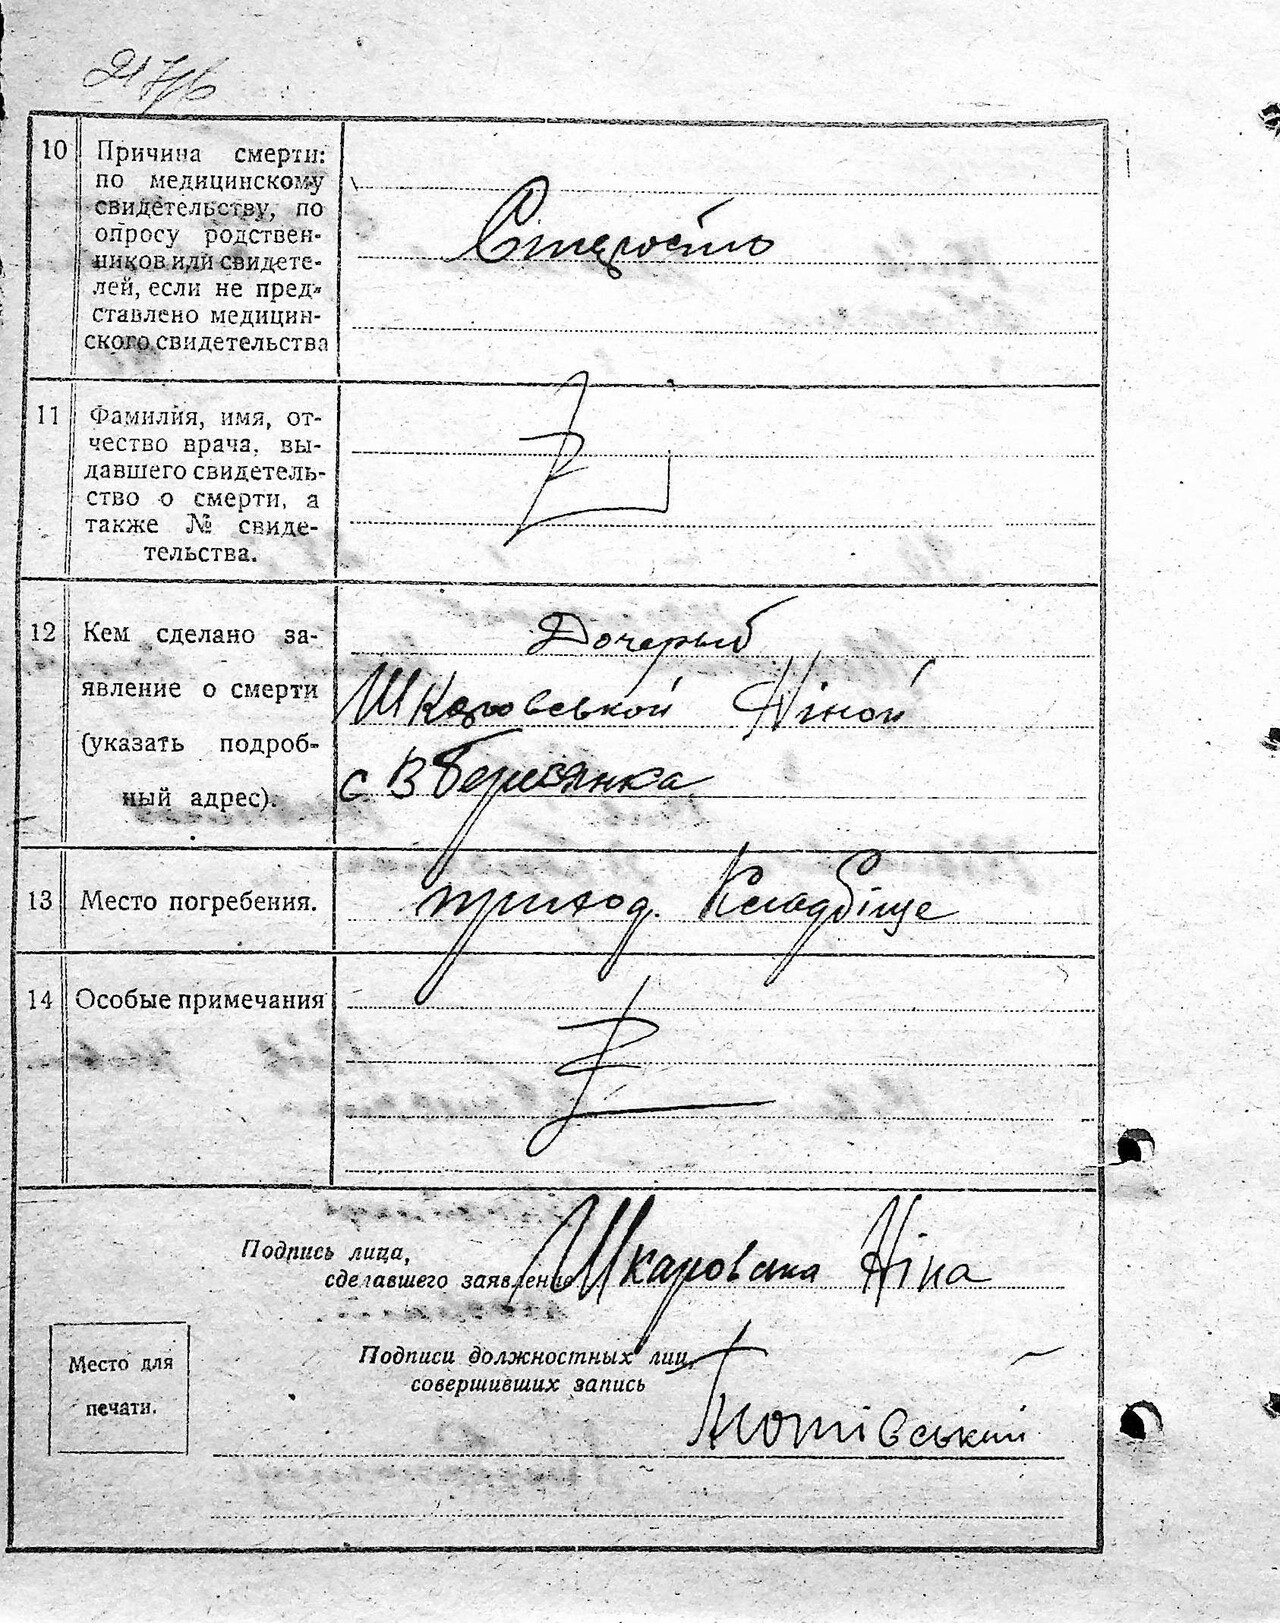 10 Причина смерти:
по медицинскому
свидетельству, по
опросу родствен-
ников или свидете-
лей, если не пред-
ставлено медицин-
ского свидетельства
Старость
11 Фамилия, имя, от-
чество врача, вы-
давшего свидетель-
ство о смерти, а
также № свиде-
тельства.
12 Кем сделано за-
явление о смерти
(указать подроб-
ный адрес).
Дочерью
Шкаровськой Ніной
с В Березянка
13 Место погребения.
приход. Кладбіще
14 Особые примечания
Подпись лица,
сделавшего заявление
Шкаровська Ніна
Место для
печати.
Подписи должностных лиц,
совершивших запись